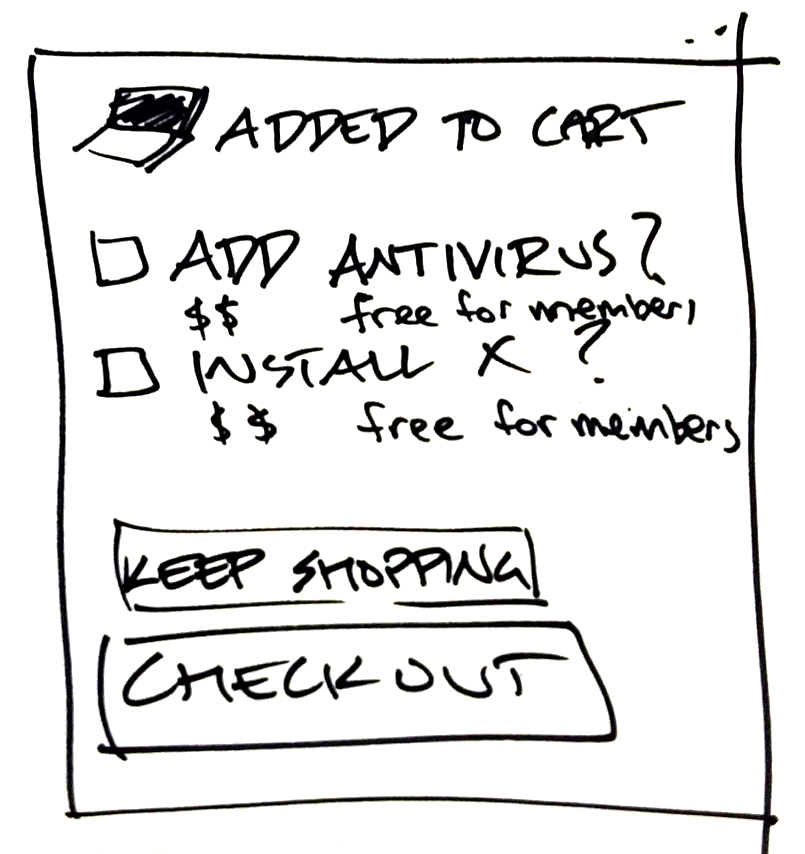 ADDED TO CART
ADD ANTIVIRUS?
$$ free for members
INSTALL X?
$$ free for members
KEEP SHOPPING
CHECKOUT